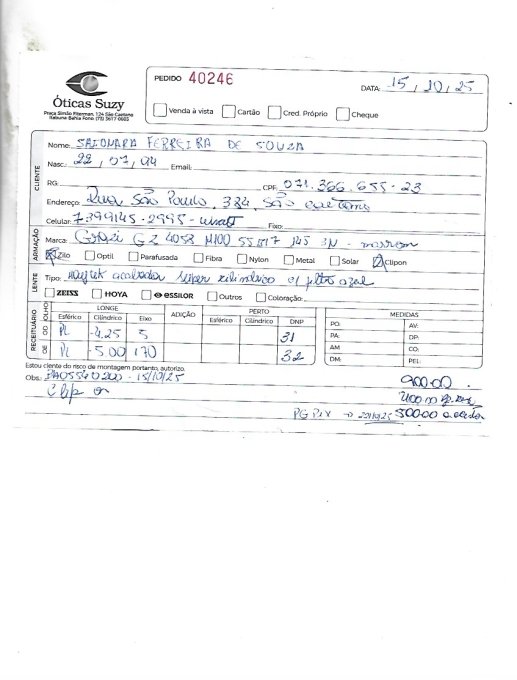 Óticas Suzy
Praça Simão Fiterman, 124 São Caetano
Itabuna Bahia Fone: (73) 3617-0003
PEDIDO 40246
DATA: 15, 10, 25
Venda à vista Cartão Cred. Próprio Cheque
CLIENTE
Nome: SAIONARA FERREIRA DE SOUZA
Nasc.: 22, 07, 94 Email:
RG: CPF: 071.366.655-23
Endereço: Rua São Paulo, 384, São Caetano
Celular: 7399145-2995 - Fixo:
ARMAÇÃO
Marca: Grazi GZ 4058 55 17 145 3N - marrom
Zilo Optil Parafusada Fibra Nylon Metal Solar Clipon
LENTE
Tipo: acabadas super cilíndrico c/ filtro azul
ZEISS HOYA essilor Outros Coloração:
RECEITUÁRIO
OLHO LONGE ADIÇÃO PERTO MEDIDAS
Esférico Cilíndrico Eixo Esférico Cilíndrico DNP
OD PL -4.25 5 31
OE PL 5.00 170 32
PO: AV:
PA: DP:
AM: CO:
DM: PEL:
Estou ciente do risco de montagem portanto, autorizo.
Obs.: - 15/10/25
Clip on
900.00
PG PIX → 500.00